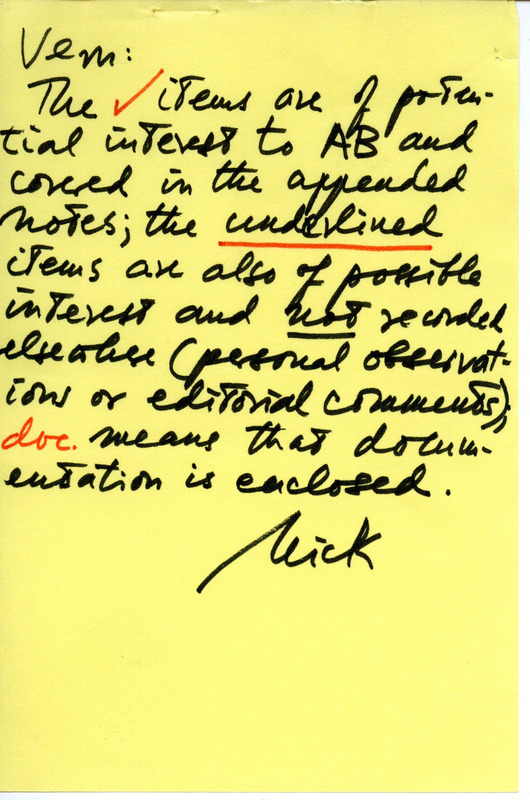 Vern:
The ✓ items are of poten-
tial interest to AB and
covered in the appended
notes; the underlined
items are also of possible
interest and not recorded
elsewhere (personal observat-
ions or editorial comments);
doc. means that docum-
entation is enclosed.
Nick